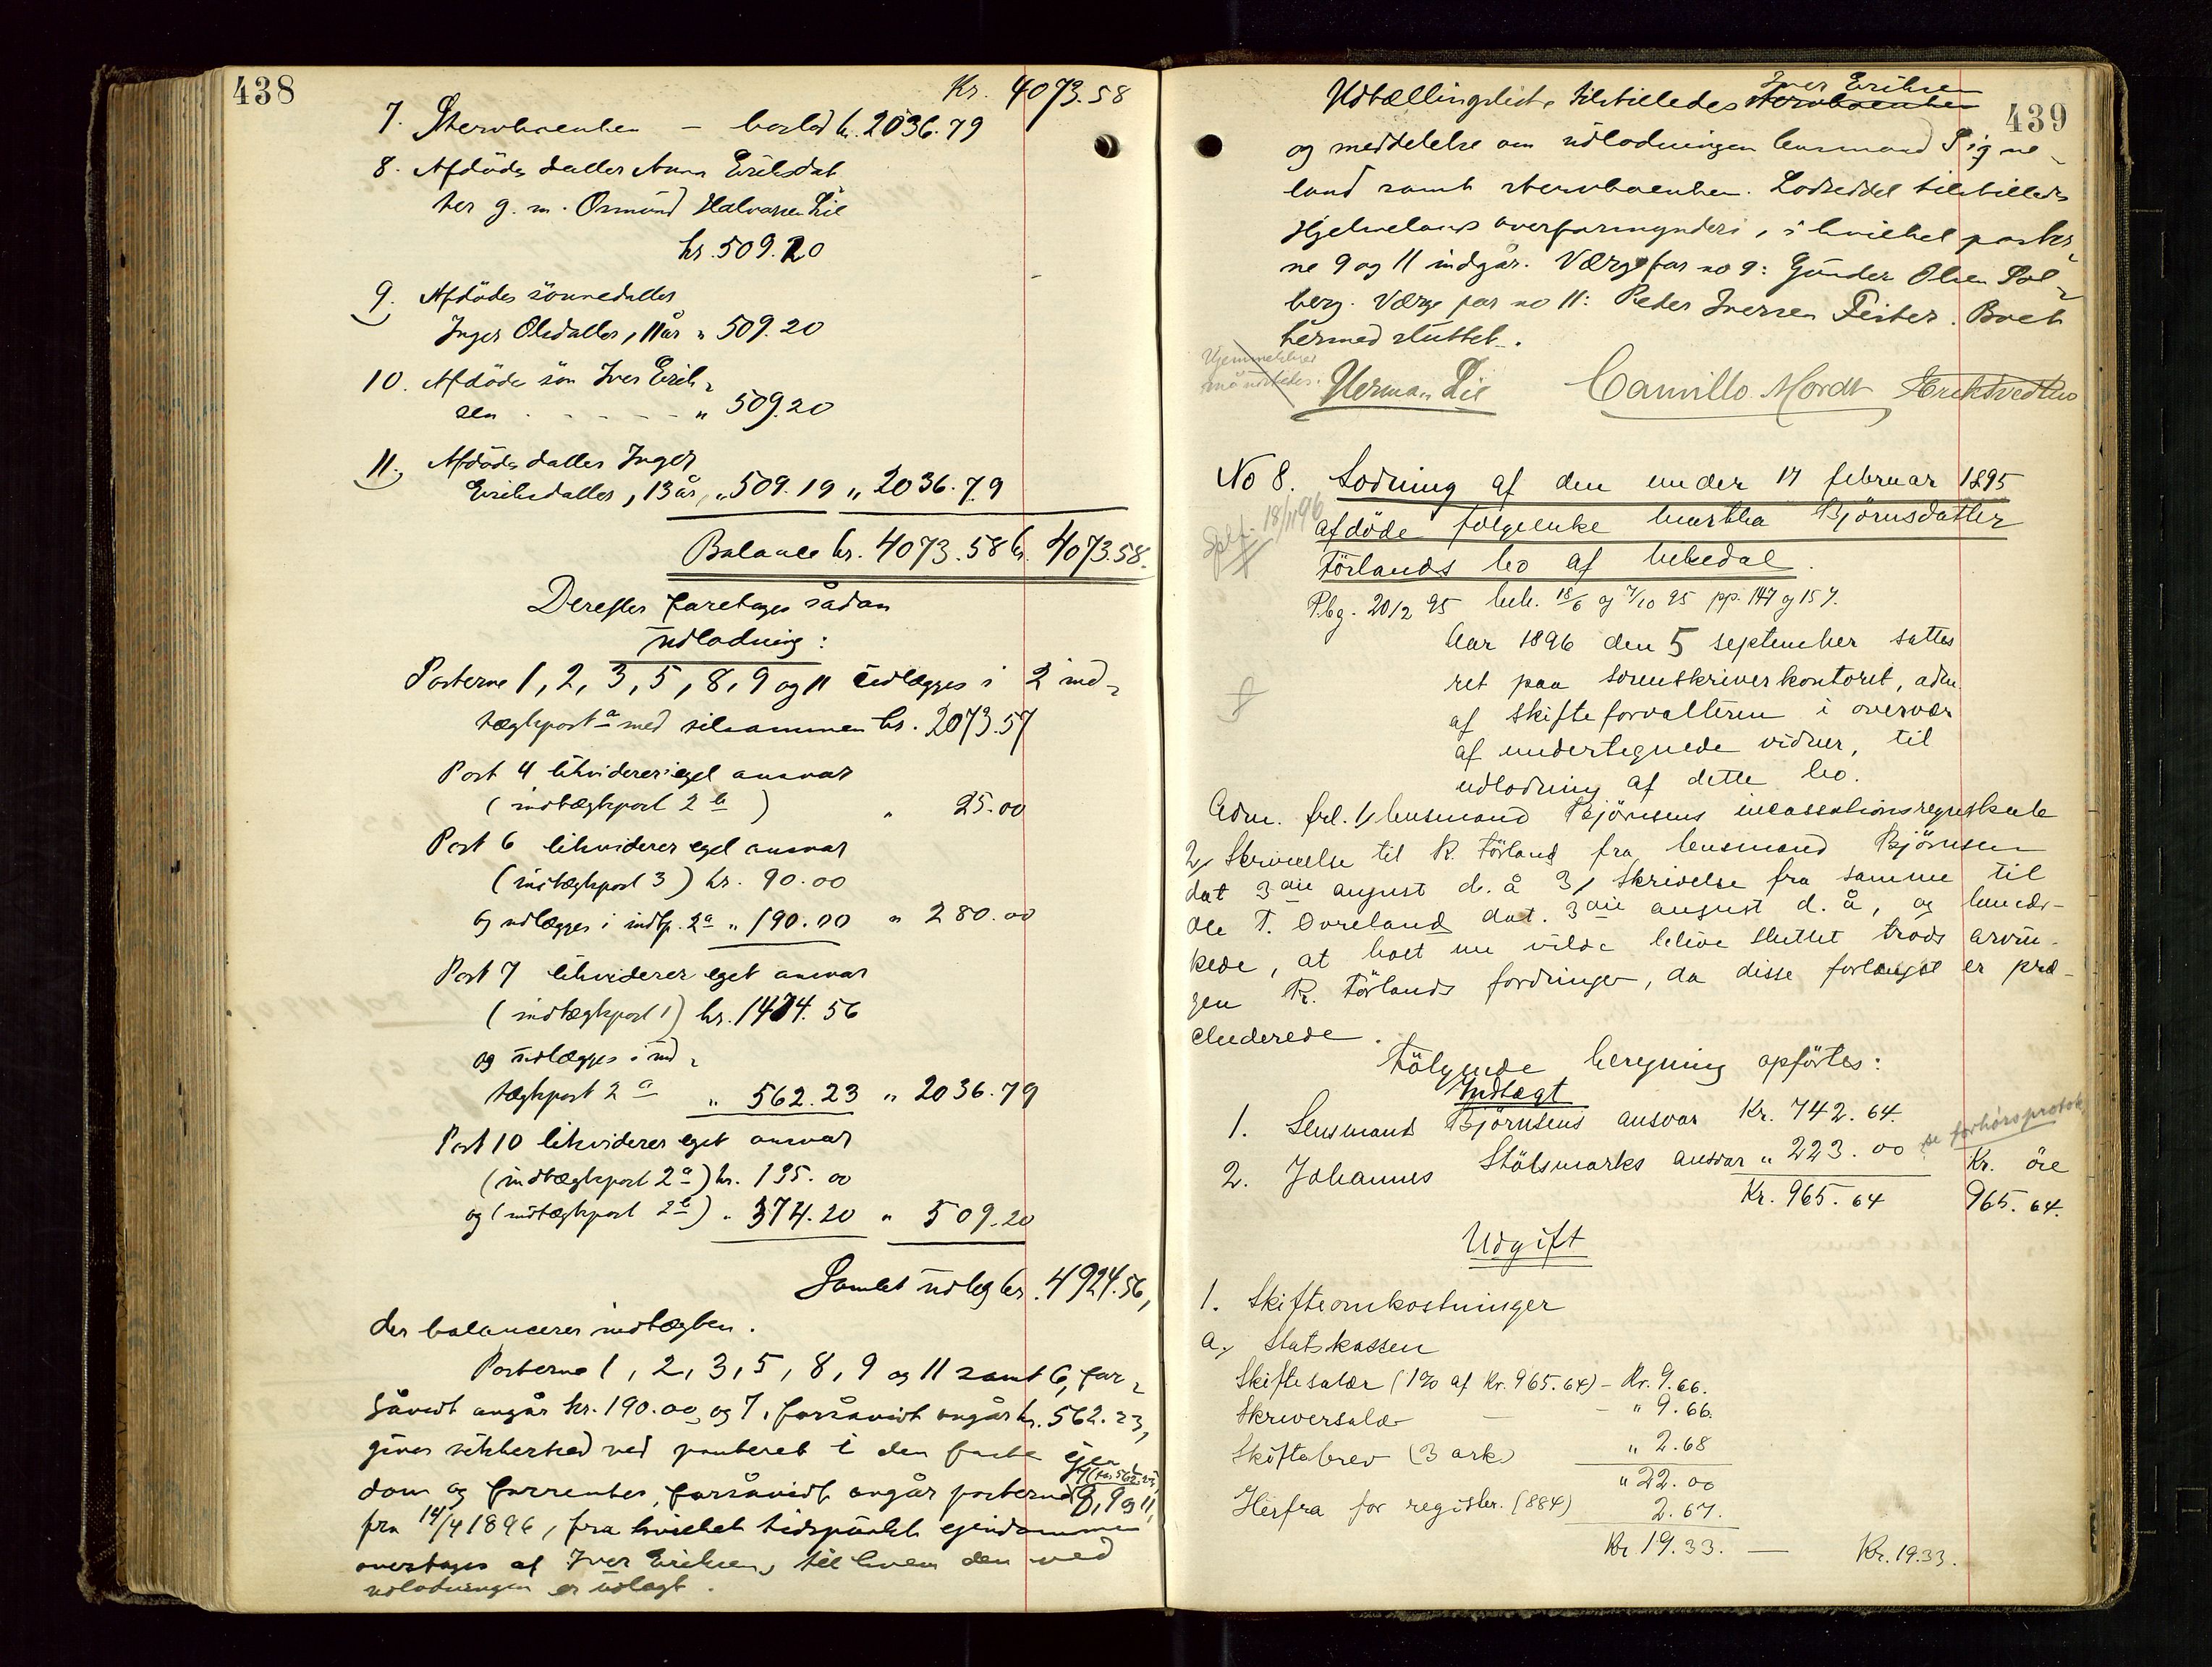 438
Kr. 4073.58
7. Stervboenken – boslod kr. 2036.79
8. Afdødes datter Anna Eriksdat
ter g. m. Osmund Halvorsen Lie
kr. 509.20
9. Afdødes sönnedatter
Inger Olsdatter, 11 år „ 509.20
10. Afdødes sön Iver Erik-
sen . - - - - - „ 509.20
11. Afdødes datter Inger
Eriksdatter, 13 år, „ 509.19 „ 2036.79
Balance kr. 4073.58 kr. 4073.58.
Derefter foretages sådan
udlodning:
Posterne 1, 2, 3, 5, 8, 9 og 11 udlægges i 2 ind-
tægtspost a med tilsammen kr. 2073.57
Post 4 likviderer i eget ansvar
(indtægtspost 2 b) „ 25.00
Post 6 likviderer eget ansvar
(indtægtspost 3) kr. 90.00
og udlægges i indtp. 2a „ 190.00 „ 280.00
Post 7 likviderer eget ansvar
(indtægtspost 1) kr. 1474.56
og udlægges i ind-
tægtspost 2 a „ 562.23 „ 2036.79
Post 10 likviderer eget ansvar
(indtægtspost 2a) kr. 135.00
og (indtægtspost 2a) „ 374.20 „ 509.20
Samlet udlæg kr. 4924.56,
der balancerer indtægten.
Posterne 1, 2, 3, 5, 8, 9 og 11 samt 6, for-
såvidt angår kr. 190.00 og 7, forsåvidt angår kr. 562.23,
gives sikkerhed ved panteret i den faste ejen
dom og forrentes, forsåvidt angår posterne 7 (kr. 562.23) 8, 9 og 11,
fra 14/4 1896, fra hvilket tidspunkt ejendommen
overtages af Iver Eriksen, til hvem den ved
udlodningen er udlagt.
439
Iver Eriksen
Udtællingsliste tilstilledes stervboenken
og meddelelse om udlodningen lensmand Tigne-
land samt stervboenken. Lodseddel tilstilledes
Hjelmelands overformynderi, i hvilket poster-
ne 9 og 11 indgår. Værge for no 9: Gunder Olsen Sol-
berg. Værge for no 11: Peder Iversen Fister. Boet
hermed sluttet.
Herman Lie Camillo Mordt
No 8. Lodning af den under 17 februar 1895
18/11 96
afdøde følgeenke Martha Bjørnsdatter
Førlands bo af Vikedal.
Pbg. 20/2 95 beh. 18/6 og 7/10 95 pp. 147 og 157.
Aar 1896 den 5 september sattes
ret paa sorenskriverkontoret, adm.
af skifteforvalteren i overvær
af undertegnede vidner, til
udlodning af dette bo.
Adm. frl. 1, lensmand Bjørnsens incassationsregnskab
2, Skrivelse til R. Førland fra lensmand Bjørnsen
dat 3die august d. å 3, skrivelse fra samme til
Ole T. Øvreland dat. 3die august d. å, og bemær-
kede, at boet nu vilde blive sluttet trods arvin-
gen R. Førlands fordringer, da disse forlængst er præ-
cluderede.
Følgende beregning opførtes:
Indtægt
1. Lensmand Bjørnsens ansvar Kr. 742.64.
2. Johannes Stølsmarks ansvar „ 223.00 se forhørsprotok.
Kr. öre
Kr. 965.64 965.64.
Udgift
1. Skifteomkostninger
a, Statskassen
Skiftesalær (1% af Kr. 965.64) – Kr. 9.66.
Skriversalær – – „ 9.66.
Skiftebrev (3 ark) „ 2.68
„ 22.00
Herfra for registr. (884) 2.67.
Kr. 19.33. — Kr. 19.33.